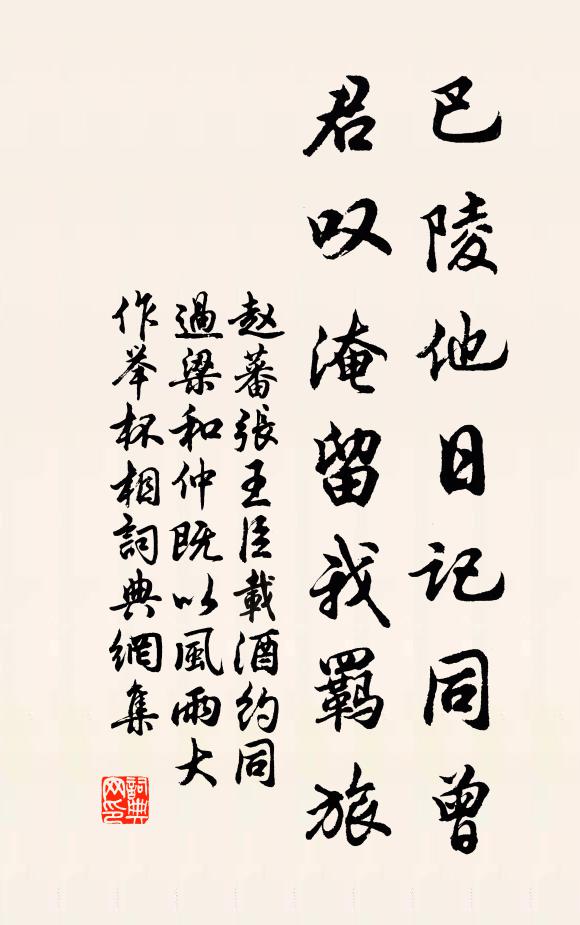 巴陵他日记同曾
君叹淹留我羁旅
赵蕃張王臣載酒约同
過梁和仲既以風雨大
作举杯相詞典網集
詞典
网印